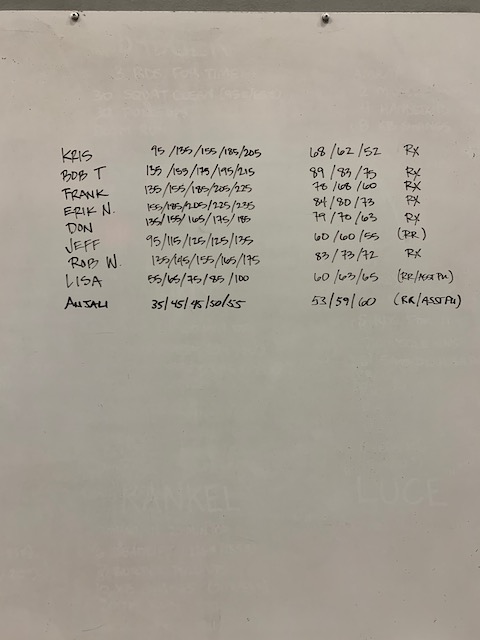 KRIS 95/135/155/185/205 68/62/52 RX
BOB T 135/155/175/195/215 89/83/75 RX
FRANK 135/155/185/205/225 78/68/60 RX
ERIK N. 155/185/205/225/235 84/80/73 RX
DON 135/155/165/175/185 79/70/63 RX
JEFF 95/115/125/125/135 60/60/55 (RR)
ROB W. 135/145/155/165/175 83/73/72 RX
LISA 55/65/75/85/100 60/63/65 (RR/ASST PU)
ANJALI 35/45/45/50/55 53/59/60 (RR/ASST PU)
RANKEL LUCE